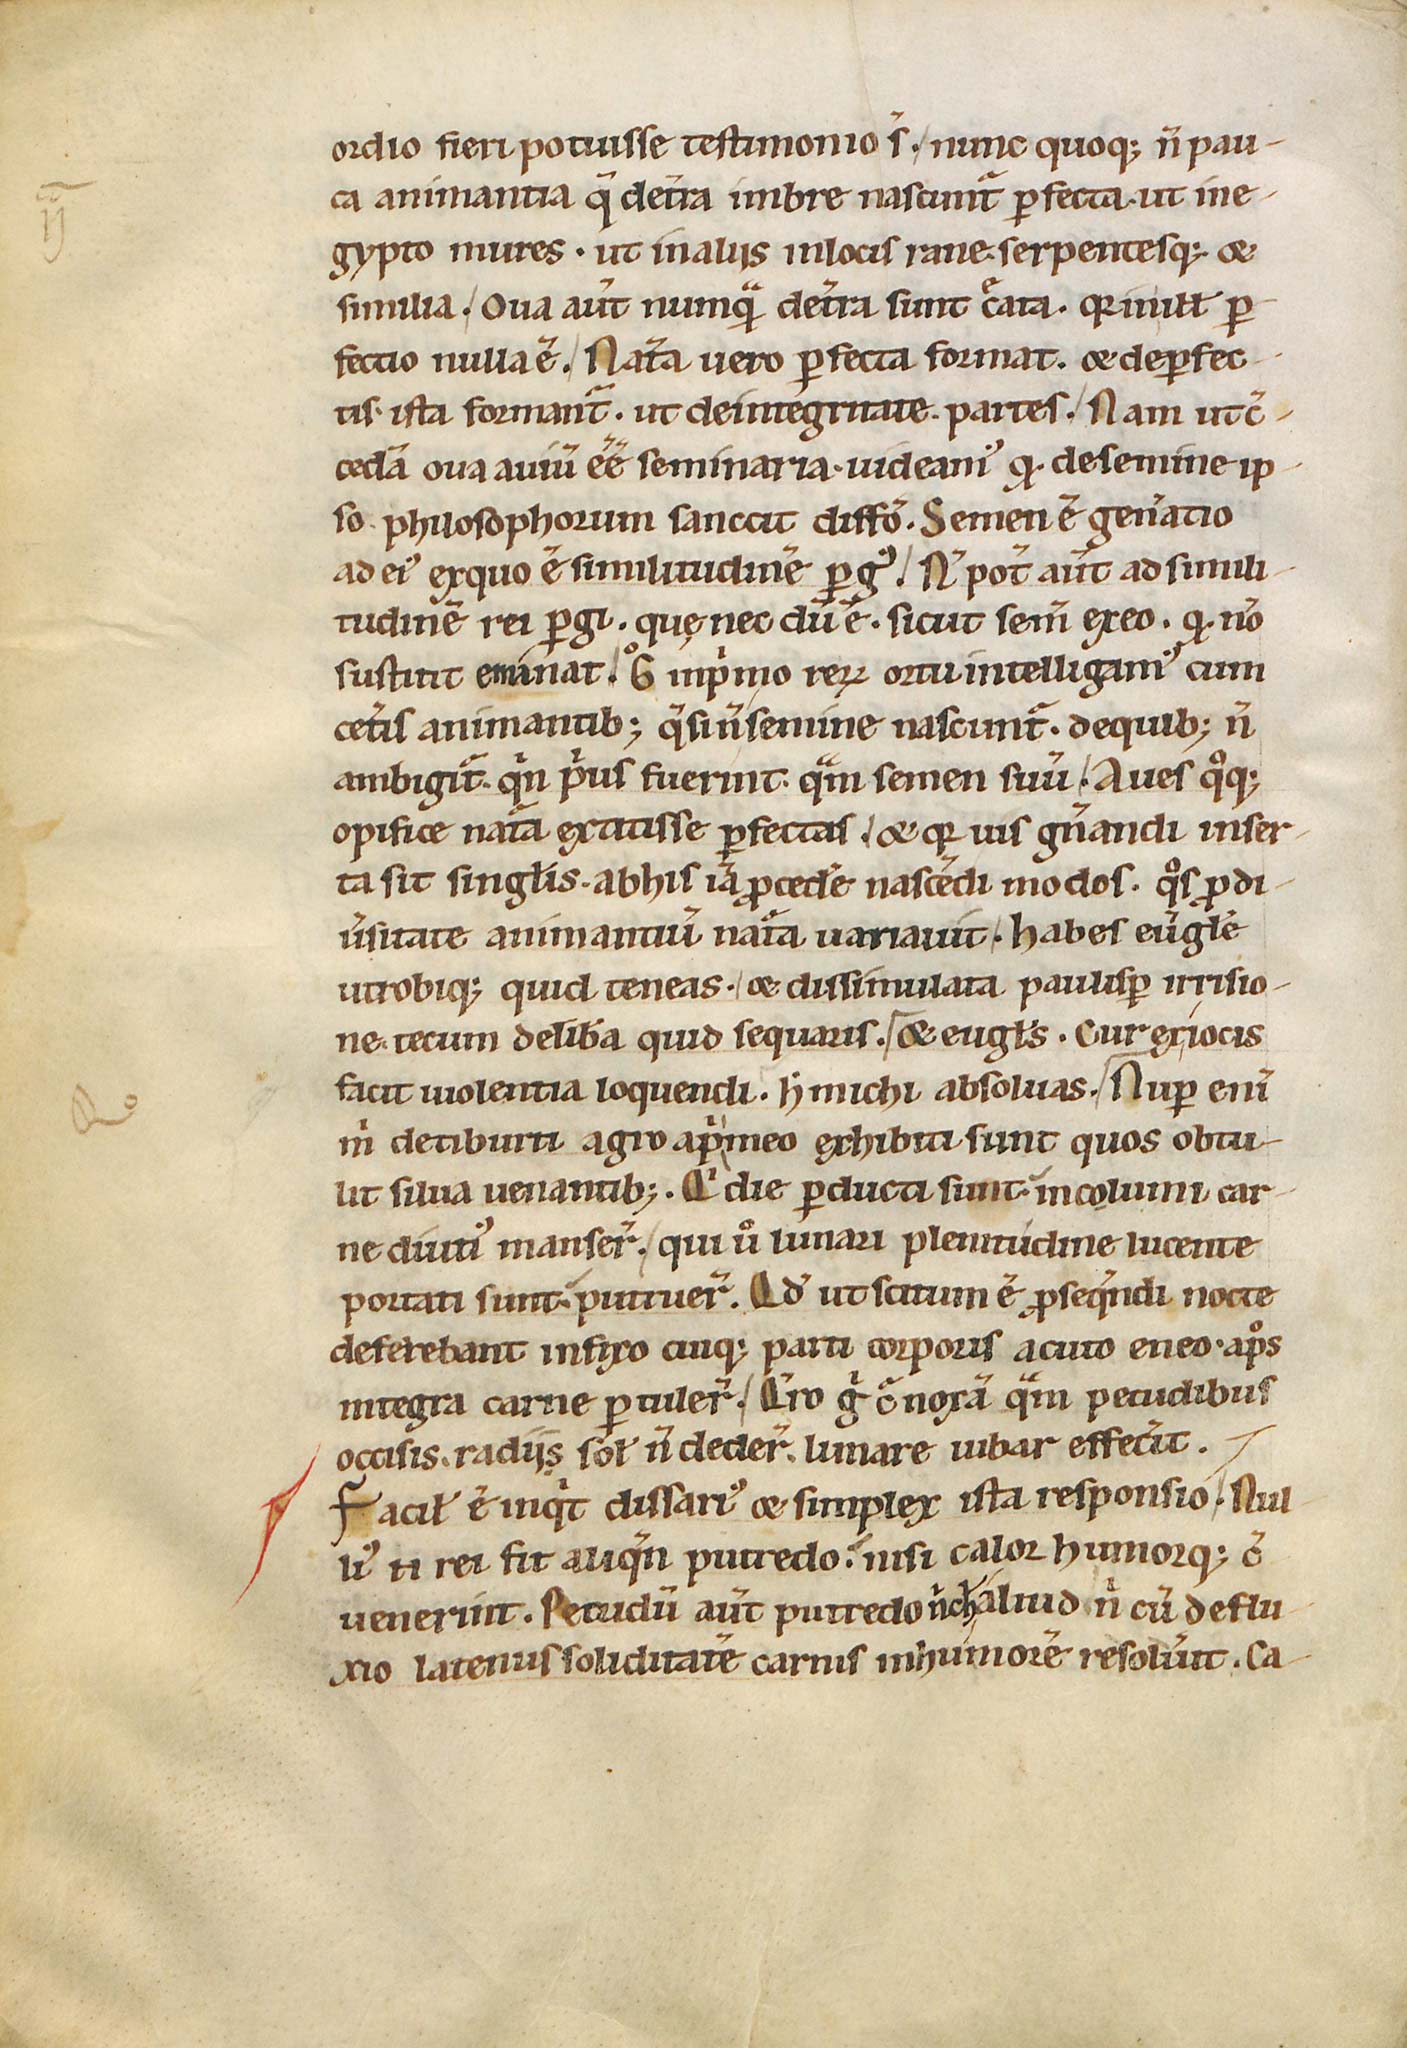 ordio fieri potuisse testimonio s̄. nunc quoq; n̄ pau-
ca animantia q̄ det̄ra imbre nascunt᷑ ꝑfecta. ut ine-
gypto mures. ut inalijs inlocis rane. serpentesq; &
similia. Oua aut̄ numqᷓ det̄ra sunt c̄ata. qr̄ inill̄ ꝑ
fectio nulla ē. Nat᷑a uero ꝑfecta format. & deꝑfec-
tis. ista formant᷑. ut deintegritate. partes. Nam utc̄-
cedā oua auiū ēē seminaria. uideamꝰ qđ desemine ip-
so philosophorum sanccit diffō. Semen ē gen̄atio
ad eiꝰ exquo ē similitudinē ꝑgꝰ. N̄ pot̄ aut̄ ad simili-
tudinē rei ꝑgi. quę nec dū ē. sicut sem̄ exeo. qđ nō
sustitit eminat. G° inp̄mo reꝝ ortu intelligamꝰ cum
cet̄is animantib; q̄ sin̄ semine nascunt᷑. dequib; n̄
ambigit᷑. qn̄ p̄us fuerint. qᷓm semen suū. Aues qͦq;
opifice nat᷑a extitisse ꝑfectas. & qr̄ uis gn̄andi inser-
ta sit singl̄is. abhis iā ꝓced̄e nascēdi modos. qͦs ꝓ di-
ūsitate animantiū nat᷑a uariauit. habes eūgl̄e
utrobiq; quid teneas. & dissimulata paulisꝑ irrisio-
ne. tecum delib̄a quid sequaris. & eugl̄s. Cur ex iocis
facit uiolentia loquendi. h̄ michi absoluas. Nuꝑ enī
m̄ detiburti agro ap̄ meo exhibiti sunt quos obtu-
lit silua uenantib;. die ꝑducti sunt. incolumi car-
ne diutiꝰ manser̄. qui uͦ lunari plenitudine lucente
portati sunt. putruer̄. ut scitum ē ꝓseqn̄di nocte
deferebant infixo cuiq; parti corporis acuto eneo. apͦs
integra carne ꝑtuler̄. gͥ c̄ noxā qᷓm pecudibus
occisis. radijs sol̄ n̄ deder̄. lunare iubar effec̄it.
Facil̄ ē inqͥt dissariꝰ & simplex ista responsio. Nul
liꝰ ti rei fit aliqn̄ putredo. nisi calor humorq; c̄
uenerint. Pecudū aut̄ putredo nͥch̄ aliud n̄ cū deflu-
xio latenus soliditatē carnis in humorē resolūit. Ca-